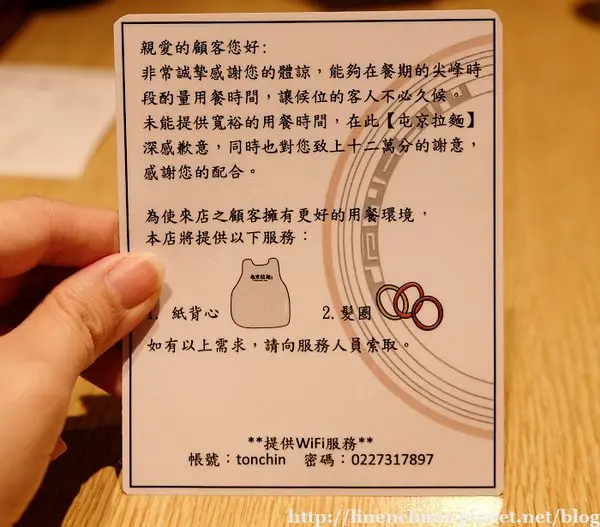 親愛的顧客您好:
非常誠摯感謝您的體諒，能夠在餐期的尖峰時
段酌量用餐時間，讓候位的客人不必久候。
未能提供寬裕的用餐時間，在此【屯京拉麵】
深感歉意，同時也對您致上十二萬分的謝意，
感謝您的配合。
為使來店之顧客擁有更好的用餐環境，
本店將提供以下服務：
1. 紙背心 2.髮圈
屯京拉麵
如有以上需求，請向服務人員索取。
**提供WiFi服務**
帳號：tonchin 密碼：0227317897